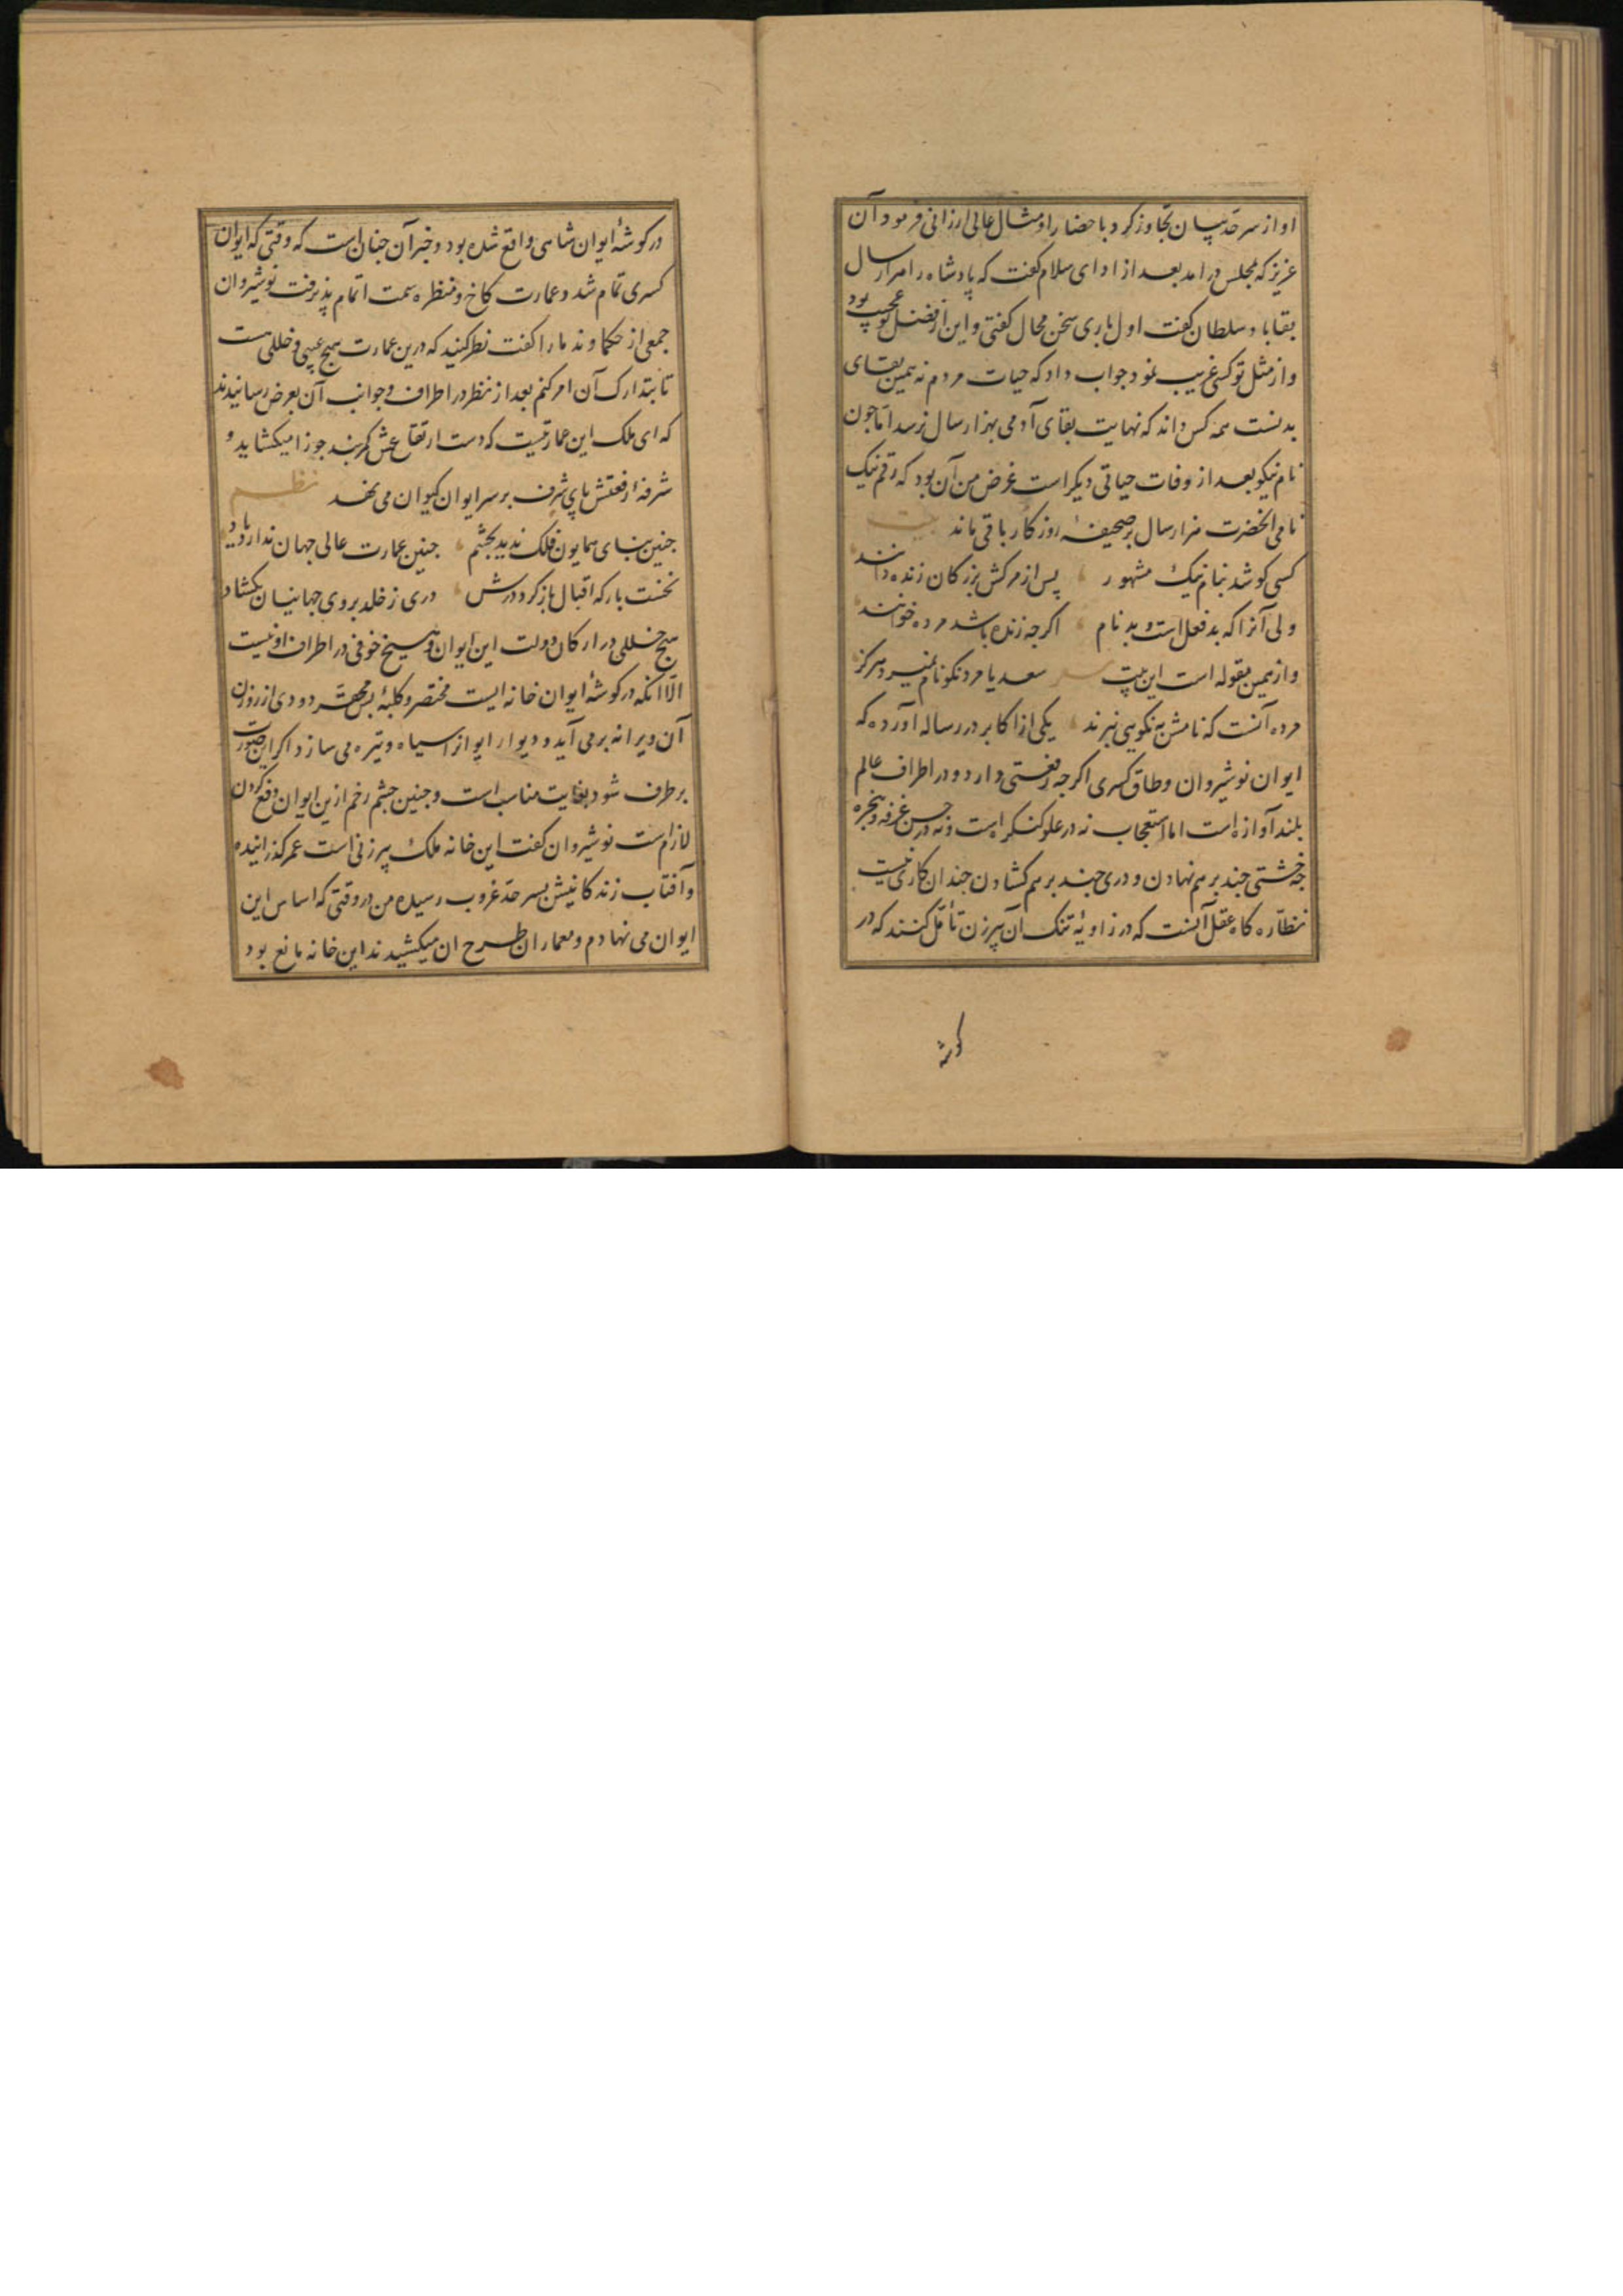 او از سرحد بیان تجاوز کرد باحضار او مثال عالی ارزانی فرمود آن
عزیز که بمجلس درامد بعد از ادای سلام کفت که پادشاه را هزار سال
بقا باد سلطان کفت اول باری سخن محال کفتی و این از فضل تو عجیب بود
و از مثل تو کسی غریب نمود جواب داد که حیات مردم نه همین بقای
بدنست همه کس داند که نهایت بقای آدمی بهزار سال نرسد اما جون
نام نیکو بعد از وفات حیاتی دیکر است غرض من آن بود که رقم نیک
نامی انحضرت هزار سال بر صحیفهٔ روزکار باقی ماند بیت
کسی کو شد بنام نیک مشهور پس از مرکش بزرکان زنده دانند
ولی آنرا که بد فعل است و بد نام اکرجه زنده باشد مرده خوانند
و از همین مقوله است این بیت سعدیا مرد نکونام نمیرد هرکز
مرده آنست که نامش به نکویی نبرند یکی از اکابر در رساله آورده که
ایوان نوشیروان و طاق کسری اکرجه رفعتی دارد و در اطراف عالم
بلند آوازه است اما استعجاب نه در علو کنکره است و نه در حسن غرفه و پنجره
جه خشتی جند بر هم نهادن و دری جند بر هم کشادن جندان کاری نیست
نظاره کاه عقل آنست که در زاویهٔ تنک آن پیرزن تأمل کنند که در
کوشه
در کوشهٔ ایوان شاهی واقع شده بود و خبر آن جنان است که وقتی که ایوان
کسری تمام شد و عمارت کاخ و منظره سمت اتمام پذیرفت نوشیروان
جمعی از حکما و ندما را کفت نظر کنید که درین عمارت هیج عیبی و خللی هست
تا بتدارک آن امر کنم بعد از نظر در اطراف و جوانب آن بعرض رسانیدند
که ای ملک این عمارتیست که دست ارتفاعش کمربند جوزا میکشاید و
شرفهٔ رفعتش پای شرف بر سر ایوان کیوان می نهد نظم
جنین بنای همایون فلک ندید بجشم جنین عمارت عالی جهان ندارد یاد
نخست بار که اقبال باز کرد درش دری ز خلد بروی جهانیان بکشاد
هیج خللی در ارکان دولت این ایوان و هیج خوفی در اطراف او نیست
الا آنکه در کوشهٔ ایوان خانه ایست مختصر و کلبهٔ بس محقر دودی از روزن
آن ویرانه برمی آید و دیوار ایوانرا سیاه و تیره می سازد اکر این صورت
برطرف شود بغایت مناسب است و جنین جشم زخم ازین ایوان دفع کردن
لازم است نوشیروان کفت این خانه ملک پیرزنی است عمر کذرانیده
و آفتاب زندکانیش بسرحد غروب رسیده من در وقتی که اساس این
ایوان می نهادم و معماران طرح ان میکشیدند این خانه مانع بود